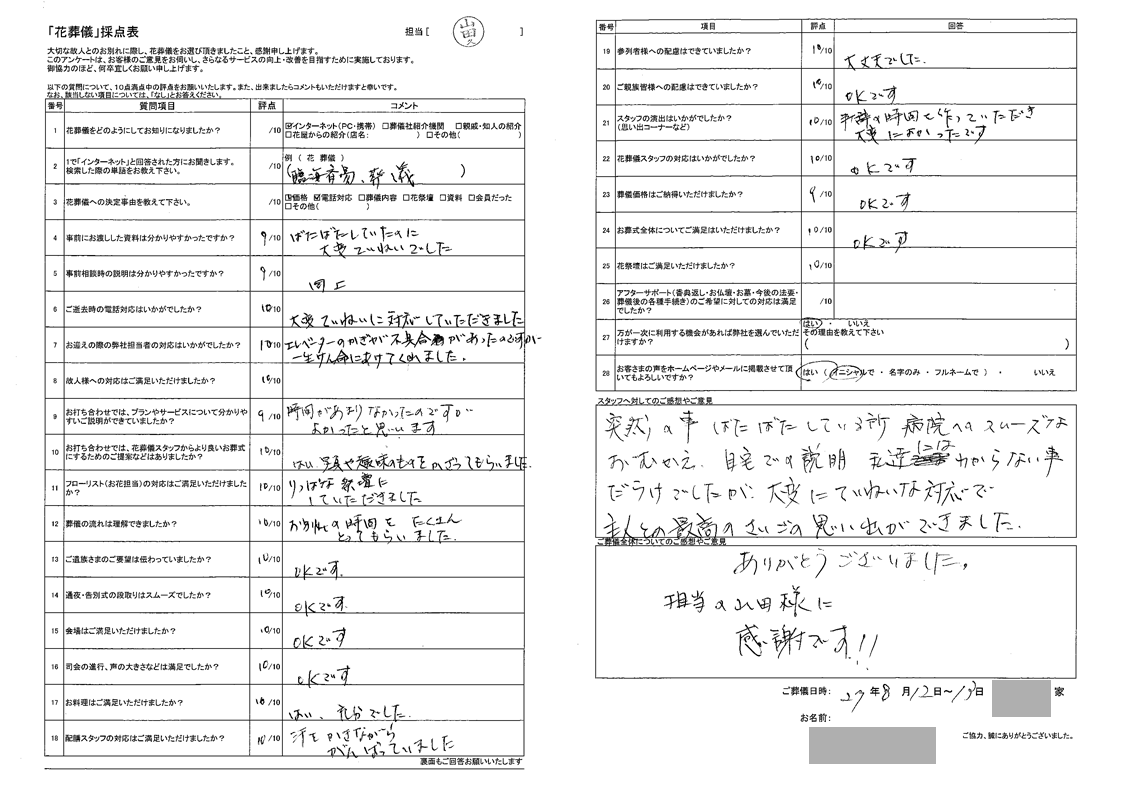 「花葬儀」採点表
担当 [ 山田 ]
大切な故人とのお別れに際し、花葬儀をお選び頂きましたこと、感謝申し上げます。
このアンケートは、お客様のご意見をお伺いし、さらなるサービスの向上・改善を目指すために実施しております。
御協力のほど、何卒宜しくお願い申し上げます。
以下の質問について、10点満点中の評点をお願いいたします。また、出来ましたらコメントもいただけますと幸いです。
なお、該当しない項目については、「なし」とお答えください。
番号 質問項目 評点 コメント
1 花葬儀をどのようにしてお知りになりましたか? /10 ☑インターネット(PC・携帯) □葬儀社紹介機関 □親戚・知人の紹介
□花屋からの紹介(店名: ) □その他( )
2 1で「インターネット」と回答された方にお聞きします。
検索した際の単語をお教え下さい。 /10 例 ( 花 葬儀 )
(臨海斎場、葬儀 )
3 花葬儀への決定事由を教えて下さい。 /10 ☑価格 ☑電話対応 □葬儀内容 □花祭壇 □資料 □会員だった
□その他( )
4 事前にお渡しした資料は分かりやすかったですか? 9/10 ばたばたしていたのに
大変ていねいでした
5 事前相談時の説明は分かりやすかったですか? 9/10 同上
6 ご逝去時の電話対応はいかがでしたか? 10/10 大変ていねいに対応していただきました
7 お迎えの際の弊社担当者の対応はいかがでしたか? 10/10 エレベーターのかぎが不具合があったのですが
一生けん命にあけてくれました。
8 故人様への対応はご満足いただけましたか? 10/10
9 お打ち合わせでは、プランやサービスについて分かりや
すいご説明ができていましたか? 9/10 時間があまりなかったのですが
よかったと思います
10 お打ち合わせでは、花葬儀スタッフからより良いお葬式
にするためのご提案などはありましたか? 10/10 はい、写真や趣味のものをかざってもらいました
11 フローリスト(お花担当)の対応はご満足いただけました
か? 10/10 りっぱな祭壇に
していただきました
12 葬儀の流れは理解できましたか? 10/10 お別れの時間をたくさん
とってもらいました.
13 ご遺族さまのご要望は伝わっていましたか? 10/10 OKです.
14 通夜・告別式の段取りはスムーズでしたか? 10/10 OKです.
15 会場はご満足いただけましたか? 10/10 OKです
16 司会の進行、声の大きさなどは満足でしたか? 10/10 OKです
17 お料理はご満足いただけましたか? 10/10 はい、充分でした.
18 配膳スタッフの対応はご満足いただけましたか? 10/10 汗をかきながら
がんばっていました
裏面もご回答お願いいたします
番号 項目 評点 回答
19 参列者様への配慮はできていましたか? 10/10 大丈夫でした.
20 ご親族皆様への配慮はできていましたか? 10/10 OKです
21 スタッフの演出はいかがでしたか?
(思い出コーナーなど) 10/10 の時間を作っていただき
大変によかったです
22 花葬儀スタッフの対応はいかがでしたか? 10/10 OKです
23 葬儀価格はご納得いただけましたか? 9/10 OKです
24 お葬式全体についてご満足はいただけましたか? 10/10 OKです
25 花祭壇はご満足いただけましたか? 10/10
26 アフターサポート(香典返し・お仏壇・お墓・今後の法要・
葬儀後の各種手続き)のご希望に対しての対応は満足
でしたか? /10
27 万が一次に利用する機会があれば弊社を選んでいただ
けますか? はい ・ いいえ
その理由を教えて下さい
( )
28 お客さまの声をホームページやメールに掲載させて頂
いてもよろしいですか? はい ( イニシャルで ・ 名字のみ ・ フルネームで ) ・ いいえ
スタッフへ対してのご感想やご意見
突然の事 ばたばたしている所 病院へのスムーズな
おむかえ. 自宅での説明 私達には わからない事
だらけでしたが 大変にていねいな対応で
主人との最高のさいごの思い出ができました.
ご葬儀全体についてのご感想やご意見
ありがとうございました。
担当の山田様に
感謝です!!
ご葬儀日時: 27年8月12日~13日 家
お名前:
ご協力、誠にありがとうございました。